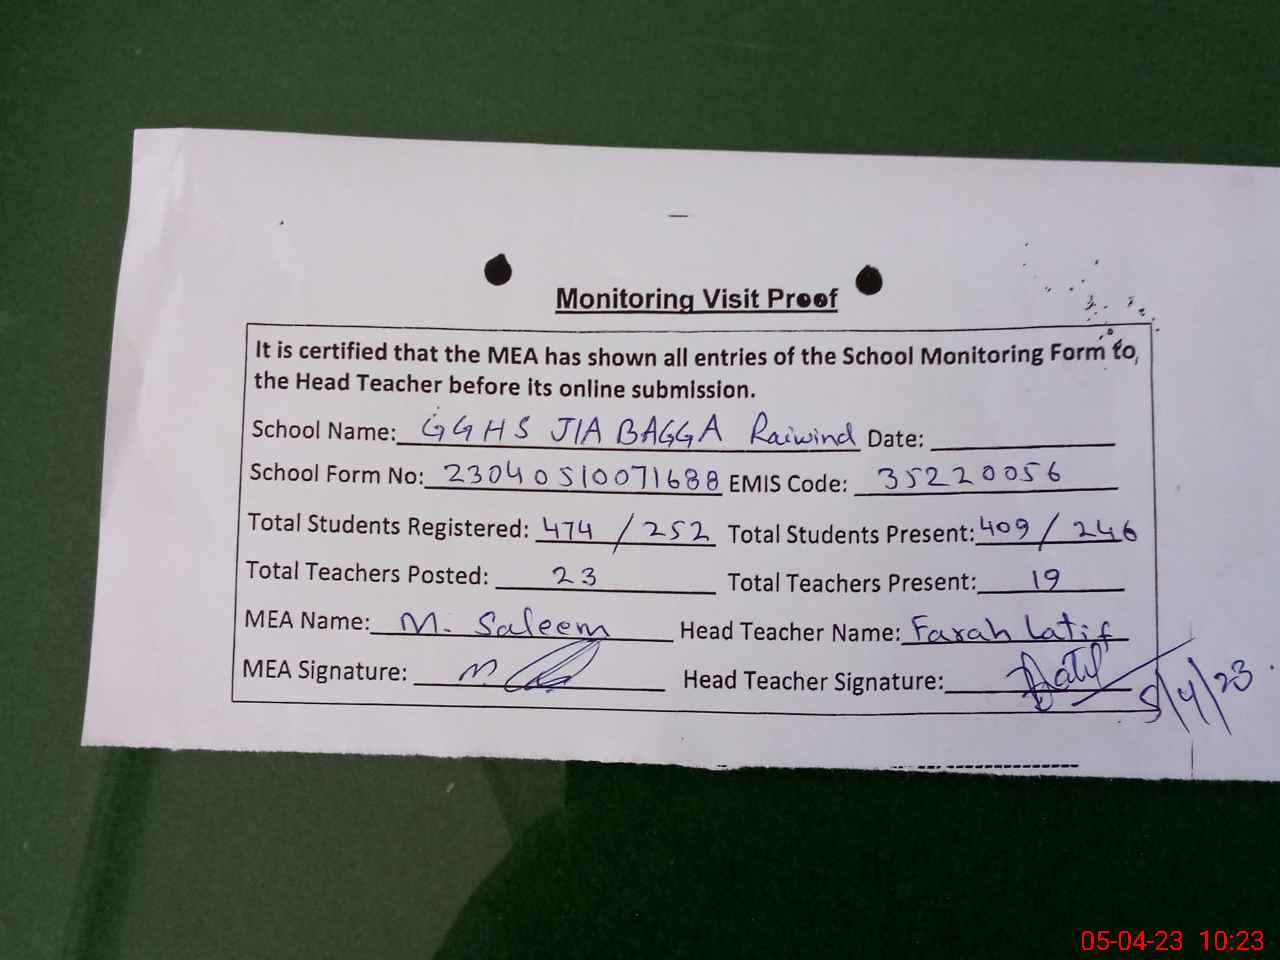 Monitoring Visit Proof
It is certified that the MEA has shown all entries of the School Monitoring Form to
the Head Teacher before its online submission.
School Name: GGHS JIA BAGGA Raiwind Date:
School Form No: 23040510071688 EMIS Code: 35220056
Total Students Registered: 474 / 252 Total Students Present: 409 / 246
Total Teachers Posted: 23 Total Teachers Present: 19
MEA Name: M. Saleem Head Teacher Name: Farah Latif
MEA Signature: Head Teacher Signature:
5/4/23
05-04-23 10:23